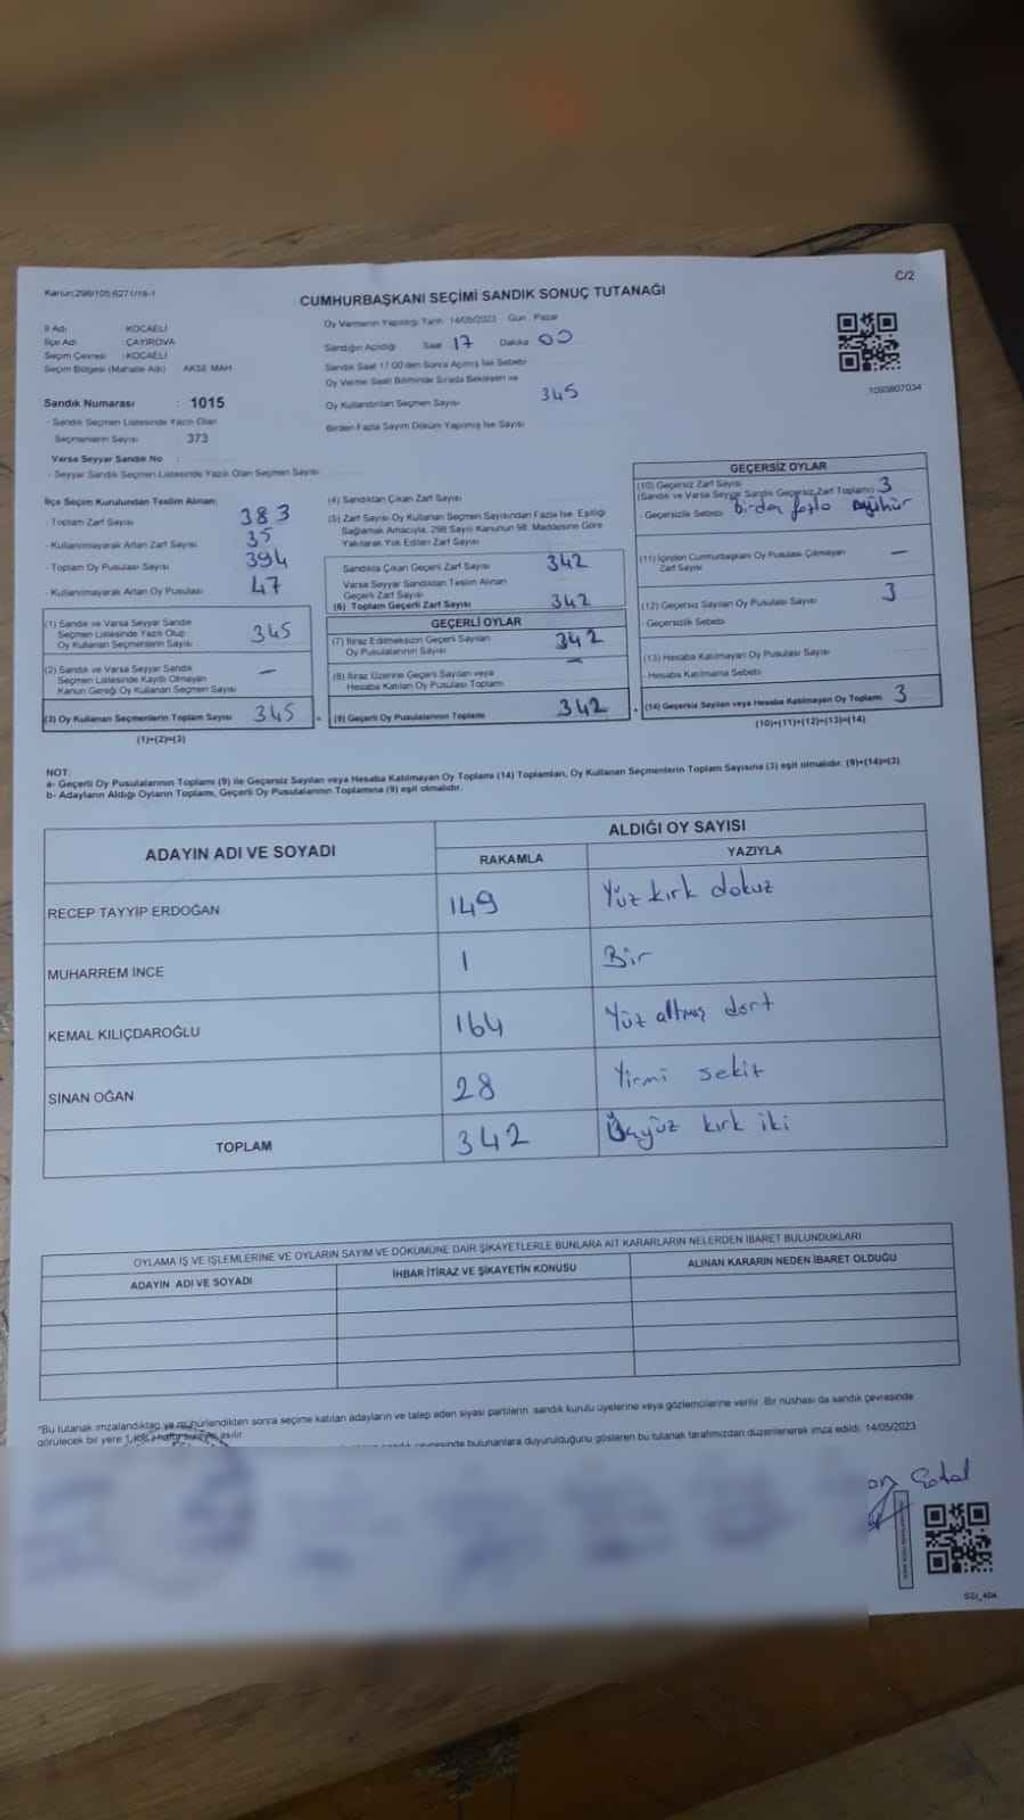 C/2
CUMHURBAŞKANI SEÇİMİ SANDIK SONUÇ TUTANAĞI
İl Adı : KOCAELİ
İlçe Adı : ÇAYIROVA
Seçim Çevresi : KOCAELİ
Seçim Bölgesi (Mahalle Adı) AKSE MAH.
Sandık Numarası : 1015
- Sandık Seçmen Listesinde Yazılı Olan
Seçmenlerin Sayısı 373
Varsa Seyyar Sandık No
- Seyyar Sandık Seçmen Listesinde Yazılı Olan Seçmen Sayısı
Oy Vermenin Yapıldığı Tarih : 14/05/2023 Gün : Pazar
Sandığın Açıldığı Saat 17 Dakika 00
Sandık Saat 17.00'den Sonra Açılmış İse Sebebi
Oy Verme Saati Bitiminde Sırada Bekleyen
Oy Kullandırılan Seçmen Sayısı 345
Birden Fazla Sayım Döküm Yapılmış İse Sayısı
1093807034
İlçe Seçim Kurulundan Teslim Alınan;
- Toplam Zarf Sayısı 383
- Kullanılmayarak Artan Zarf Sayısı 35
- Toplam Oy Pusulası Sayısı 394
- Kullanılmayarak Artan Oy Pusulası 47
(1) Sandık ve Varsa Seyyar Sandık
Seçmen Listesinde Yazılı Olup
Oy Kullanan Seçmenlerin Sayısı 345
(2) Sandık ve Varsa Seyyar Sandık
Seçmen Listesinde Kayıtlı Olmayan
Kanun Gereği Oy Kullanan Seçmen Sayısı —
(3) Oy Kullanan Seçmenlerin Toplam Sayısı 345
(1)+(2)=(3)
(4) Sandıktan Çıkan Zarf Sayısı
(5) Zarf Sayısı Oy Kullanan Seçmen Sayısından Fazla İse, Eşitliği
Sağlamak Amacıyla, 298 Sayılı Kanunun 98. Maddesine Göre
Yakılarak Yok Edilen Zarf Sayısı
Sandıkta Çıkan Geçerli Zarf Sayısı 342
Varsa Seyyar Sandıktan Teslim Alınan
Geçerli Zarf Sayısı
(6) Toplam Geçerli Zarf Sayısı 342
GEÇERLİ OYLAR
(7) İtiraz Edilmeksizin Geçerli Sayılan
Oy Pusulalarının Sayısı 342
(8) İtiraz Üzerine Geçerli Sayılan veya
Hesaba Katılan Oy Pusulası Toplamı —
(9) Geçerli Oy Pusulalarının Toplamı 342
GEÇERSİZ OYLAR
(10) Geçersiz Zarf Sayısı
(Sandık ve Varsa Seyyar Sandık Geçersiz Zarf Toplamı) 3
- Geçersizlik Sebebi Birden fazla mühür
(11) İçinden Cumhurbaşkanı Oy Pusulası Çıkmayan
Zarf Sayısı —
(12) Geçersiz Sayılan Oy Pusulası Sayısı 3
- Geçersizlik Sebebi
(13) Hesaba Katılmayan Oy Pusulası Sayısı
- Hesaba Katılmama Sebebi
(14) Geçersiz Sayılan veya Hesaba Katılmayan Oy Toplamı 3
(10)+(11)+(12)+(13)=(14)
NOT:
a- Geçerli Oy Pusulalarının Toplamı (9) ile Geçersiz Sayılan veya Hesaba Katılmayan Oy Toplamı (14) Toplamları, Oy Kullanan Seçmenlerin Toplam Sayısına (3) eşit olmalıdır. (9)+(14)=(3)
b- Adayların Aldığı Oyların Toplamı, Geçerli Oy Pusulalarının Toplamına (9) eşit olmalıdır.
ADAYIN ADI VE SOYADI ALDIĞI OY SAYISI
RAKAMLA YAZIYLA
RECEP TAYYİP ERDOĞAN 149 Yüz kırk dokuz
MUHARREM İNCE 1 Bir
KEMAL KILIÇDAROĞLU 164 Yüz altmış dört
SİNAN OĞAN 28 Yirmi sekiz
TOPLAM 342 Üçyüz kırk iki
OYLAMA İŞ VE İŞLEMLERİNE VE OYLARIN SAYIM VE DÖKÜMÜNE DAİR ŞİKAYETLERLE BUNLARA AİT KARARLARIN NELERDEN İBARET BULUNDUKLARI
ADAYIN ADI VE SOYADI İHBAR İTİRAZ VE ŞİKAYETİN KONUSU ALINAN KARARIN NEDEN İBARET OLDUĞU
"Bu tutanak imzalandıktan ve mühürlendikten sonra seçime katılan adayların ve talep eden siyasi partilerin, sandık kurulu üyelerine veya gözlemcilerine verilir. Bir nüshası da sandık çevresinde
görülecek bir yere asılır.
bulunanlara duyurulduğunu gösteren bu tutanak tarafımızdan düzenlenerek imza edildi. 14/05/2023